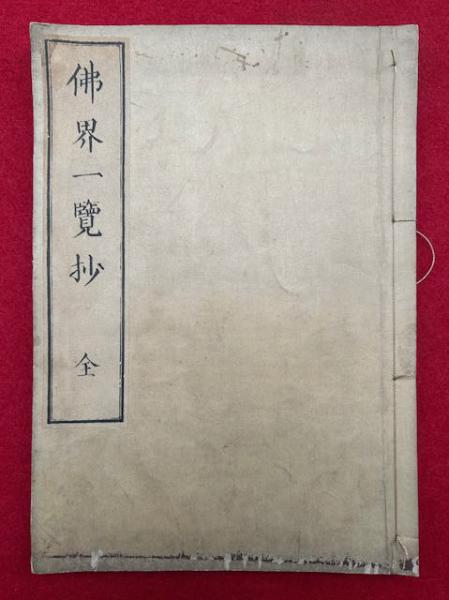 佛界一覽抄 全